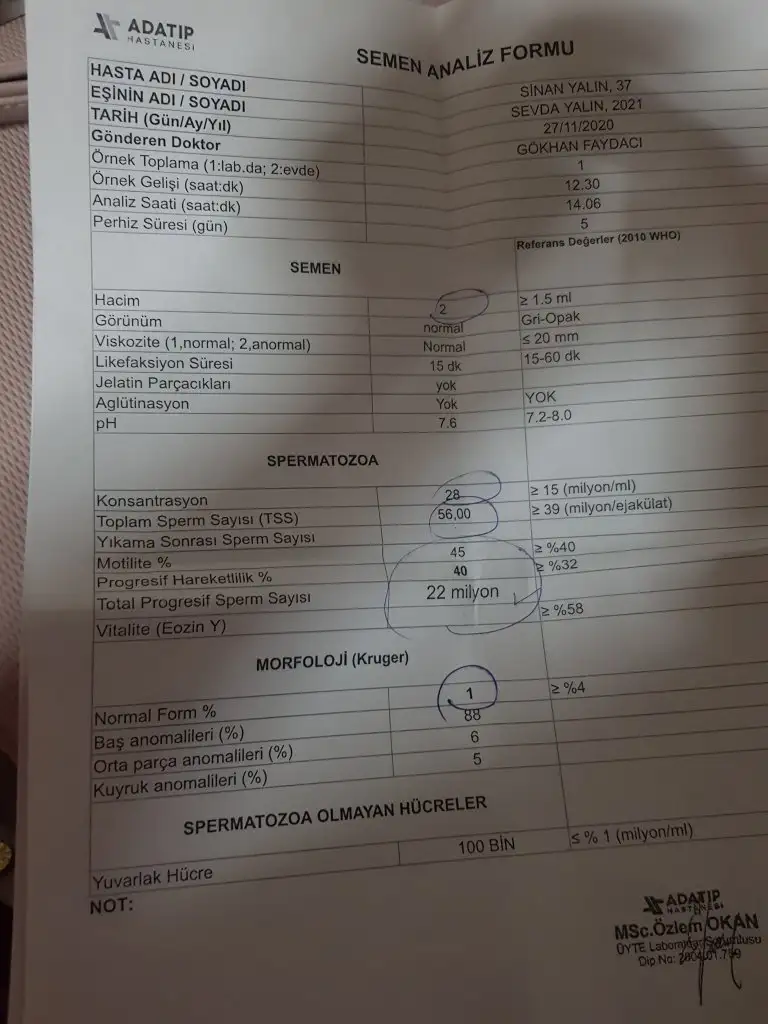 ADATIP
HASTANESİ
SEMEN ANALİZ FORMU
HASTA ADI / SOYADI SİNAN YALIN, 37
EŞİNİN ADI / SOYADI SEVDA YALIN, 2021
TARİH (Gün/Ay/Yıl) 27/11/2020
Gönderen Doktor GÖKHAN FAYDACI
Örnek Toplama (1:lab.da; 2:evde) 1
Örnek Gelişi (saat:dk) 12.30
Analiz Saati (saat:dk) 14.06
Perhiz Süresi (gün) 5
SEMEN Referans Değerler (2010 WHO)
Hacim 2 ≥ 1.5 ml
Görünüm normal Gri-Opak
Viskozite (1,normal; 2,anormal) Normal ≤ 20 mm
Likefaksiyon Süresi 15 dk 15-60 dk
Jelatin Parçacıkları yok
Aglütinasyon Yok YOK
pH 7.6 7.2-8.0
SPERMATOZOA
Konsantrasyon 28 ≥ 15 (milyon/ml)
Toplam Sperm Sayısı (TSS) 56,00 ≥ 39 (milyon/ejakülat)
Yıkama Sonrası Sperm Sayısı
Motilite % 45 ≥ %40
Progresif Hareketlilik % 40 ≥ %32
Total Progresif Sperm Sayısı 22 milyon
Vitalite (Eozin Y) ≥ %58
MORFOLOJİ (Kruger)
Normal Form % 1 ≥ %4
Baş anomalileri (%) 88
Orta parça anomalileri (%) 6
Kuyruk anomalileri (%) 5
SPERMATOZOA OLMAYAN HÜCRELER
Yuvarlak Hücre 100 BİN ≤ % 1 (milyon/ml)
NOT:
ADATIP
HASTANESİ
MSc.Özlem OKAN
ÜYTE Laboratuar Sorumlusu
Dip No: